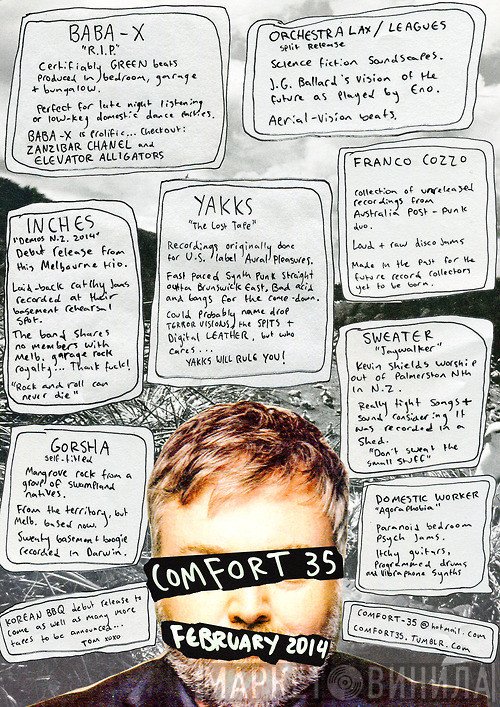 BABA-X
"R.I.P."
Certifiably GREEN beats
produced in bedroom, garage
+ bungalow.
Perfect for late night listening
or low-key domestic dance parties.
BABA-X is prolific... Checkout:
ZANZIBAR CHANEL and
ELEVATOR ALLIGATORS
ORCHESTRALAX / LEAGUES
split Release
Science fiction Soundscapes.
J.G. Ballard's vision of the
future as played by Eno.
Aerial-Vision beats.
FRANCO COZZO
collection of unreleased
recordings from
Australia Post-Punk
duo.
Loud + raw disco Jams
Made in the past for the
future record collectors
yet to be born.
INCHES
"Demos N.Z. 2014"
Debut release from
this Melbourne trio.
Laid-back catchy Jams
recorded at their
basement rehearsal
spot.
The band shares
no members with
Melb. garage rock
royalty... Thank fuck!
"Rock and roll can
never die"
YAKKS
"The Lost Tape"
Recordings originally done
for U.S. label Aural Pleasures.
Fast paced Synth Punk Straight
outta Brunswick East. Bad acid
and bangs for the come-down.
Could probably name drop
TERROR VISIONS, the SPITS +
Digital LEATHER, but who
cares...
YAKKS WILL RULE YOU!
SWEATER
"Jaywalker"
Kevin Shields worship
out of Palmerston Nth
in N.Z.
Really tight Songs +
sound considering it
was recorded in a
Shed.
"Don't sweat the
small stuff"
GORSHA
self-titled
Mangrove rock from a
group of swampland
natives.
From the territory, but
Melb. based now.
Sweaty basement boogie
recorded in Darwin.
DOMESTIC WORKER
"Agoraphobia"
Paranoid bedroom
Psych Jams.
Itchy guitars,
Programmed drums
and Vibraphone Synths
COMFORT 35
FEBRUARY 2014
KOREAN BBQ debut release to
come as well as many more
tapes to be announced...
TOM XOXO
COMFORT-35@hotmail.com
COMFORT35.TUMBLR.com
МАРКЕТ ВИНИЛА